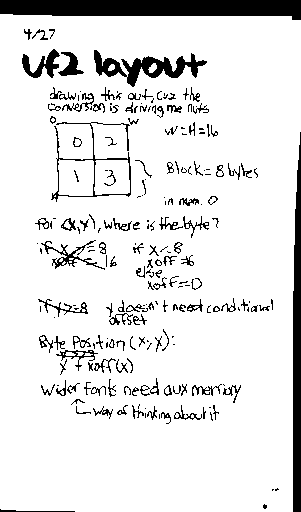 4/27
uf2 layout
drawing this out, cuz the
conversion is driving me nuts
0 W
W=H=16
0 2
1 3
Block = 8 bytes
H
in mem. 0
for (x,y), where is the byte?
if x >= 8 if x < 8
xoff = 16 xoff = 16
else
xoff = 0
if y >= 8 y doesn't need conditional
offset
Byte Position (x,y):
y + xoff(x)
Wider fonts need aux memory
way of thinking about it